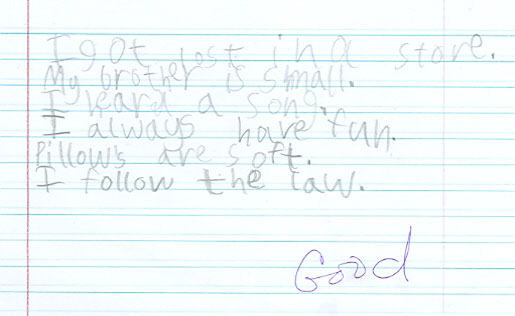 I got lost in a store.
My brother is small.
I heard a song.
I always have fun.
Pillows are soft.
I follow the law.
Good